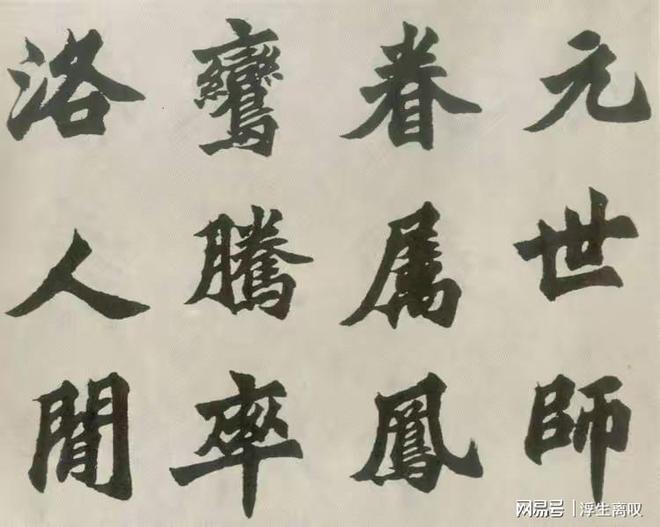 元世師
眷属鳳
鸞騰率
洛人閒
网易号 | 浮生离叹